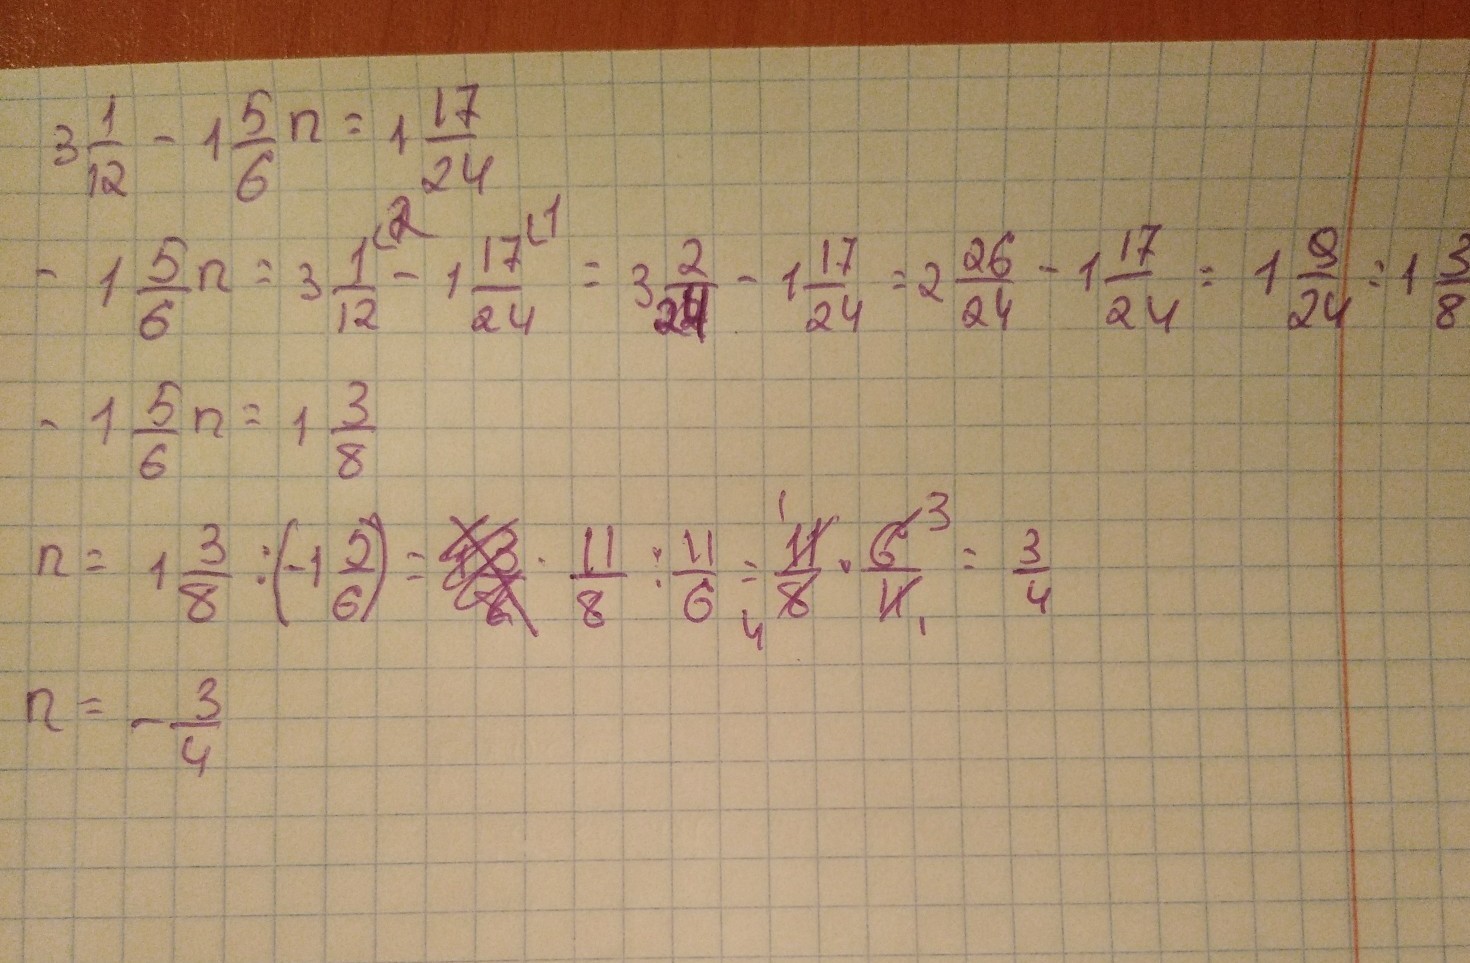 3 1/12 - 1 5/6 n = 1 17/24
- 1 5/6 n = 3 1/12 (2 - 1 17/24 (1 = 3 2/24 - 1 17/24 = 2 26/24 - 1 17/24 = 1 9/24 = 1 3/8
- 1 5/6 n = 1 3/8
n = 1 3/8 : (-1 5/6) = 11/8 : 11/6 = 11/8 · 6/11 = 3/4
n = - 3/4